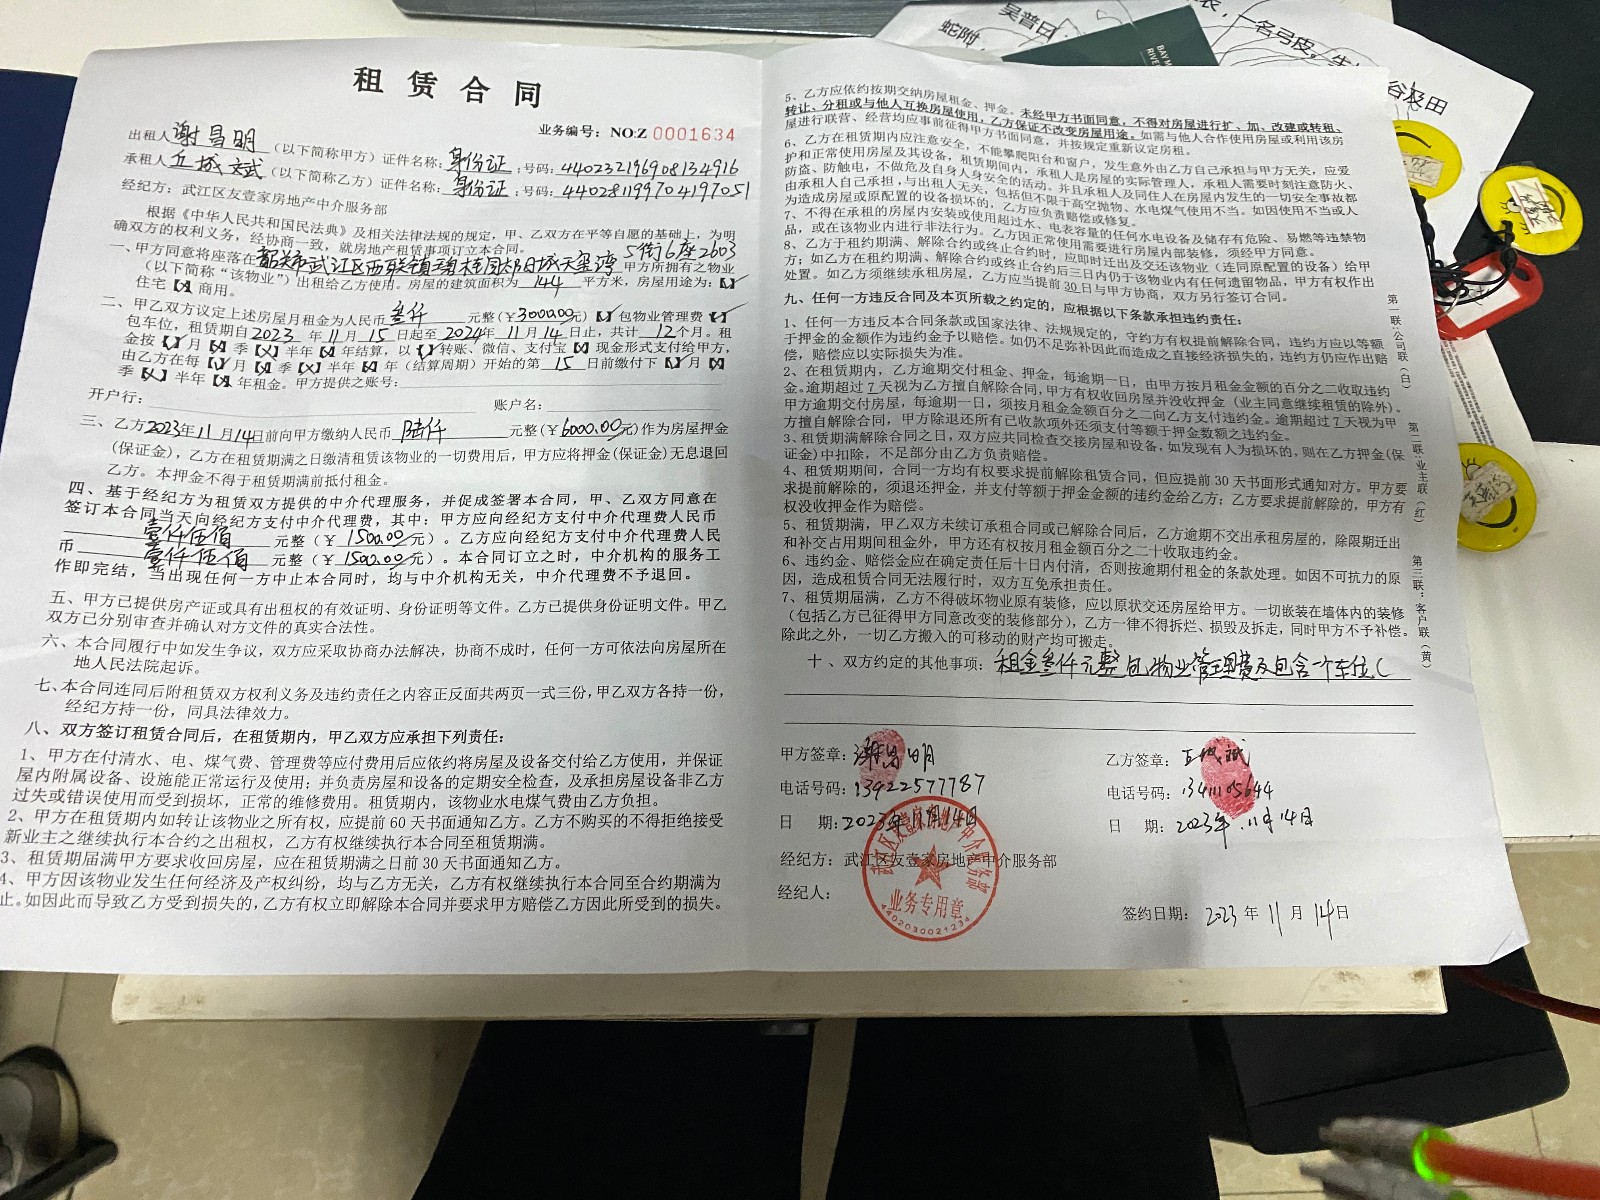 租 赁 合 同
业务编号：NO:Z 0001634
出租人谢昌明（以下简称甲方）证件名称：身份证：号码：440232196908134916
承租人丘城斌（以下简称乙方）证件名称：身份证：号码：440281199704197051
经纪方：武江区友壹家房地产中介服务部
根据《中华人民共和国民法典》及相关法律法规的规定，甲、乙双方在平等自愿的基础上，为明
确双方的权利义务，经协商一致，就房地产租赁事项订立本合同。
5街6座2603
一、甲方同意将座落在韶关市武江区西联镇碧桂园太阳城天玺湾甲方所拥有之物业
（以下简称“该物业”）出租给乙方使用。房屋的建筑面积为 144 平方米，房屋用途为：【✓】
住宅【✗】商用。
二、甲乙双方议定上述房屋月租金为人民币 叁仟 元整(￥3000.00元)【✓】包物业管理费【✓】
包车位，租赁期自2023 年11月 15 日起至 2024年 11月 14 日止，共计 12个月。租
金按【✓】月【✗】季【✗】半年【✗】年结算，以【✓】转账、微信、支付宝【✗】现金形式支付给甲方，
由乙方在每【✓】月【✗】季【✗】半年【✗】年（结算周期）开始的第 15 日前缴付下【✓】月【✗】
季【✗】半年【✗】年租金。甲方提供之账号：
开户行： 账户名：
三、乙方2023年11月14日前向甲方缴纳人民币 陆仟 元整(￥6000.00元)作为房屋押金
(保证金)，乙方在租赁期满之日缴清租赁该物业的一切费用后，甲方应将押金(保证金)无息退回
乙方。本押金不得于租赁期满前抵付租金。
四、基于经纪方为租赁双方提供的中介代理服务，并促成签署本合同，甲、乙双方同意在
签订本合同当天向经纪方支付中介代理费，其中：甲方应向经纪方支付中介代理费人民币
壹仟伍佰 元整（￥ 1500.00元）。乙方应向经纪方支付中介代理费人民
币 壹仟伍佰 元整（￥ 1500.00元）。本合同订立之时，中介机构的服务工
作即完结，当出现任何一方中止本合同时，均与中介机构无关，中介代理费不予退回。
五、甲方已提供房产证或具有出租权的有效证明、身份证明等文件。乙方已提供身份证明文件。甲乙
双方已分别审查并确认对方文件的真实合法性。
六、本合同履行中如发生争议，双方应采取协商办法解决，协商不成时，任何一方可依法向房屋所在
地人民法院起诉。
七、本合同连同后附租赁双方权利义务及违约责任之内容正反面共两页一式三份，甲乙双方各持一份，
经纪方持一份，同具法律效力。
八、双方签订租赁合同后，在租赁期内，甲乙双方应承担下列责任：
1、甲方在付清水、电、煤气费、管理费等应付费用后应依约将房屋及设备交付给乙方使用，并保证
屋内附属设备、设施能正常运行及使用；并负责房屋和设备的定期安全检查，及承担房屋设备非乙方
过失或错误使用而受到损坏，正常的维修费用。租赁期内，该物业水电煤气费由乙方负担。
2、甲方在租赁期内如转让该物业之所有权，应提前60天书面通知乙方。乙方不购买的不得拒绝接受
新业主之继续执行本合约之出租权，乙方有权继续执行本合同至租赁期满。
3、租赁期届满甲方要求收回房屋，应在租赁期满之日前30天书面通知乙方。
4、甲方因该物业发生任何经济及产权纠纷，均与乙方无关，乙方有权继续执行本合同至合约期满为
止。如因此而导致乙方受到损失的，乙方有权立即解除本合同并要求甲方赔偿乙方因此所受到的损失。
5、乙方应依约按期交纳房屋租金、押金。未经甲方书面同意，不得对房屋进行扩、加、改建或转租、
转让、分租或与他人互换房屋使用，乙方保证不改变房屋用途。如需与他人合作使用房屋或利用该房
屋进行联营、经营均应事前征得甲方书面同意，并按规定重新议定房租。
6、乙方在租赁期内应注意安全，不能攀爬阳台和窗户，发生意外由乙方自己承担与甲方无关，应爱
护和正常使用房屋及其设备，租赁期间内，承租人是房屋的实际管理人，承租人需要时刻注意防火、
防盗、防触电，不做危及自身人身安全的活动。并且承租人及同住人在房屋内发生的一切安全事故都
由承租人自己承担，与出租人无关，包括但不限于高空抛物、水电煤气使用不当。如因使用不当或人
为造成房屋或原配置的设备损坏的，乙方应负责赔偿或修复。
7、不得在承租的房屋内安装或使用超过水、电表容量的任何水电设备及储存有危险、易燃等违禁物
品，或在该物业内进行非法行为。乙方因正常使用需要进行房屋内部装修，须经甲方同意。
8、乙方于租约期满、解除合约或终止合约时，应即时迁出及交还该物业（连同原配置的设备）给甲
方；如乙方在租约期满、解除合约或终止合约后三日内仍于该物业内有任何遗留物品，甲方有权作出
处置。如乙方须继续承租房屋，乙方应当提前30日与甲方协商，双方另行签订合同。
九、任何一方违反合同及本页所载之约定的，应根据以下条款承担违约责任：
1、任何一方违反本合同条款或国家法律、法规规定的，守约方有权提前解除合同，违约方应以等额
于押金的金额作为违约金予以赔偿。如仍不足弥补因此而造成之直接经济损失的，违约方仍应作出赔
偿，赔偿应以实际损失为准。
2、在租赁期内，乙方逾期交付租金、押金，每逾期一日，由甲方按月租金金额的百分之二收取违约
金。逾期超过7天视为乙方擅自解除合同，甲方有权收回房屋并没收押金（业主同意继续租赁的除外）。
甲方逾期交付房屋，每逾期一日，须按月租金金额百分之二向乙方支付违约金。逾期超过7天视为甲
方擅自解除合同，甲方除退还所有已收款项外还须支付等额于押金数额之违约金。
3、租赁期满解除合同之日，双方应共同检查交接房屋和设备，如发现有人为损坏的，则在乙方押金(保
证金)中扣除，不足部分由乙方负责赔偿。
4、租赁期期间，合同一方均有权要求提前解除租赁合同，但应提前30天书面形式通知对方。甲方要
求提前解除的，须退还押金，并支付等额于押金金额的违约金给乙方；乙方要求提前解除的，甲方有
权没收押金作为赔偿。
5、租赁期满，甲乙双方未续订承租合同或已解除合同后，乙方逾期不交出承租房屋的，除限期迁出
和补交占用期间租金外，甲方还有权按月租金额百分之二十收取违约金。
6、违约金、赔偿金应在确定责任后十日内付清，否则按逾期付租金的条款处理。如因不可抗力的原
因，造成租赁合同无法履行时，双方互免承担责任。
7、租赁期届满，乙方不得破坏物业原有装修，应以原状交还房屋给甲方。一切嵌装在墙体内的装修
（包括乙方已征得甲方同意改变的装修部分），乙方一律不得拆烂、损毁及拆走，同时甲方不予补偿。
除此之外，一切乙方搬入的可移动的财产均可搬走。
十、双方约定的其他事项：租金叁仟元整包物业管理费及包含一个车位。
甲方签章：谢昌明
电话号码：13922577787
日 期：2023年11月14日
经纪方：武江区友壹家房地产中介服务部
经纪人：
乙方签章：丘城斌
电话号码：13411105644
日 期：2023年11月14日
签约日期： 2023 年 11 月 14日
武江区友壹家房地产中介服务部
业务专用章
4402030021234
第一联：公司联（白）
第二联：业主联（红）
第三联：客户联（黄）
吴普曰
蛇附，
一名弓皮，
谷及田
BAY M
RIVE